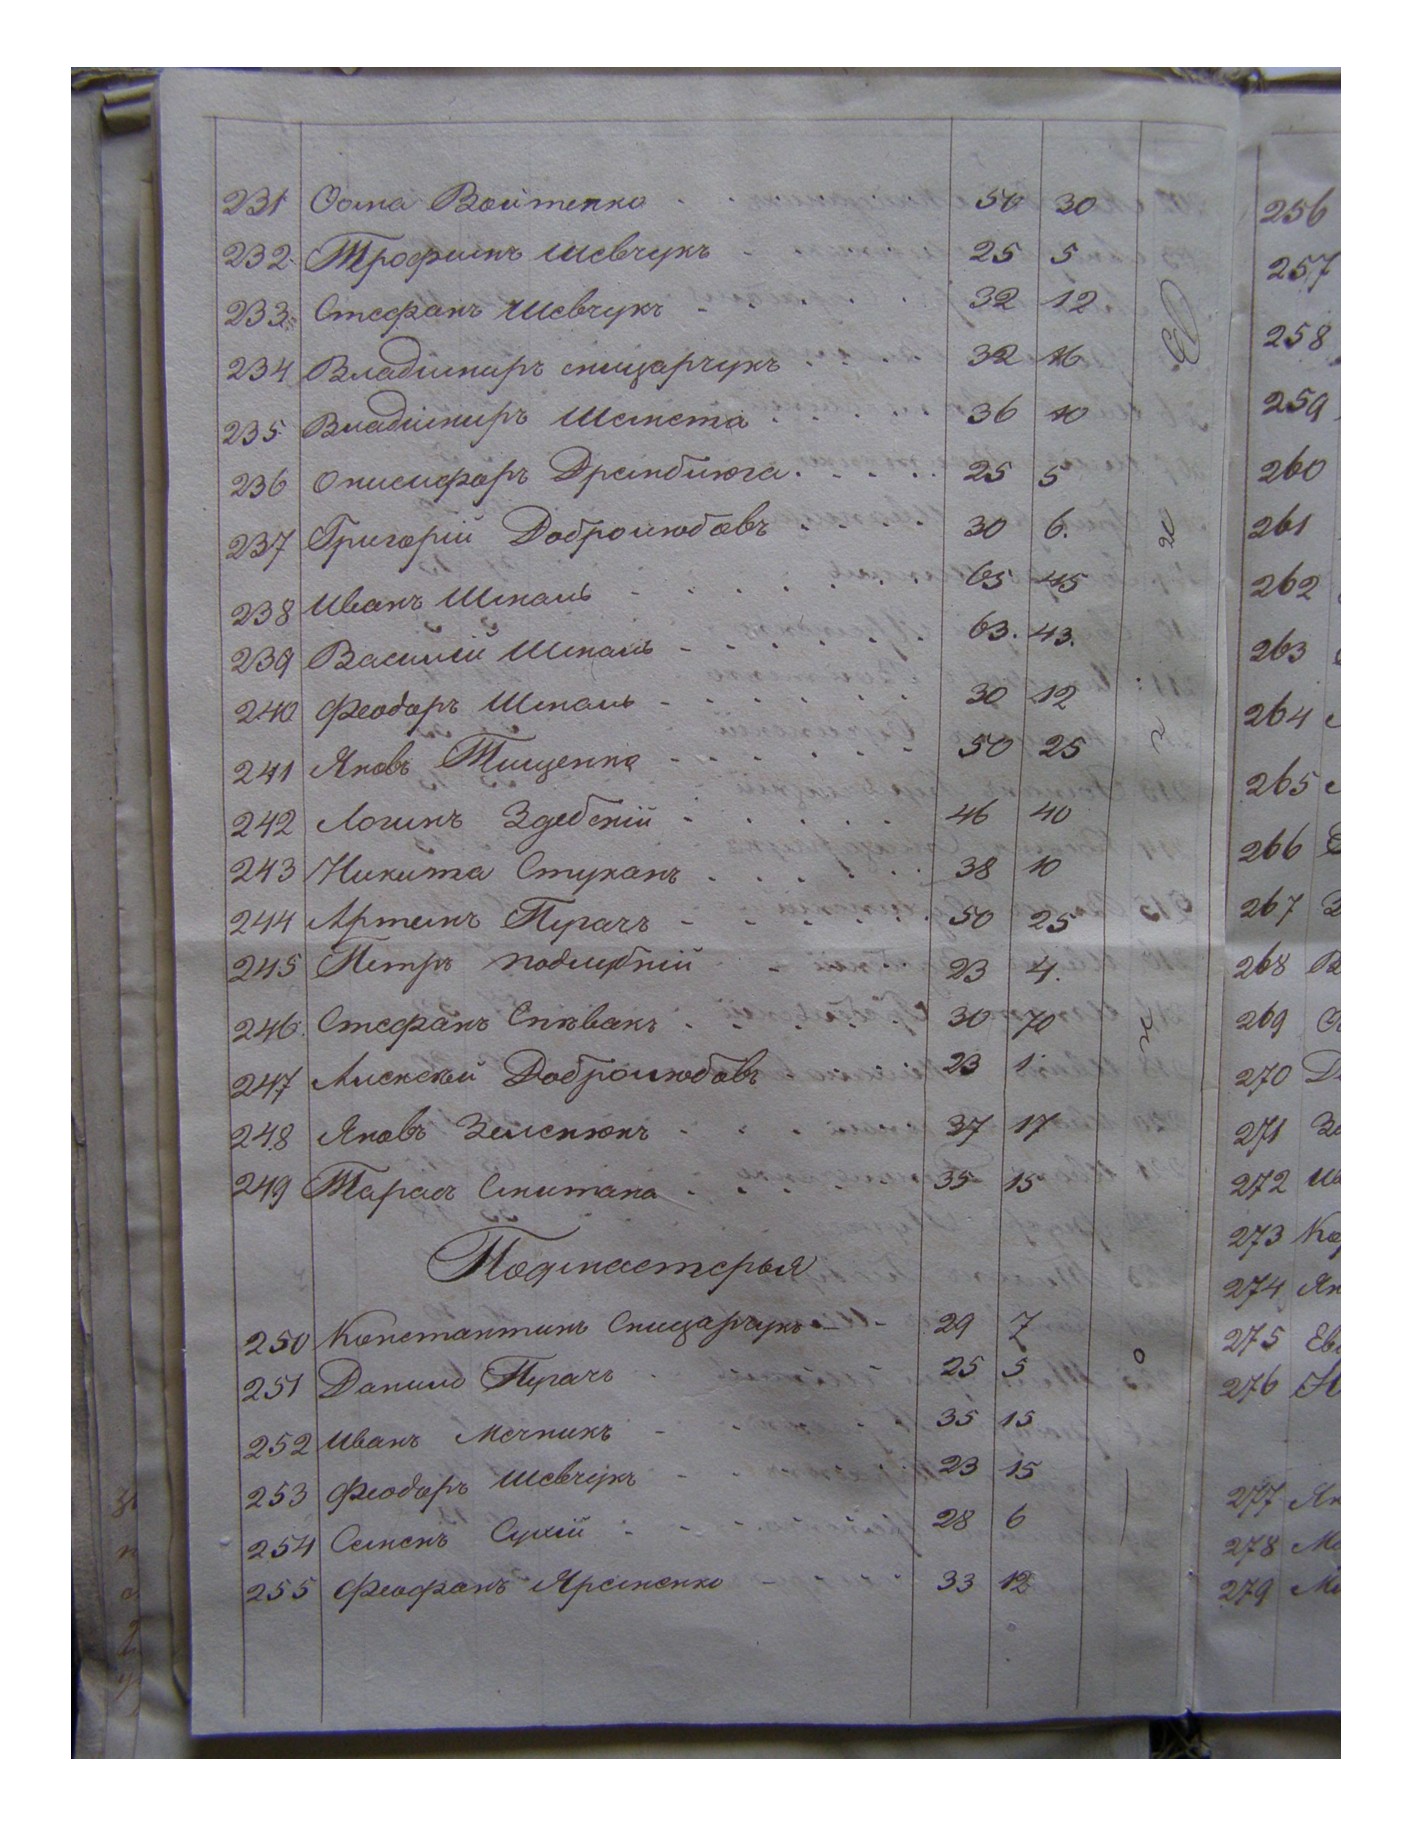 231 Ѳома Войтенко 50 30
232 Трофимъ Шевчукъ 25 5
233 Стефанъ Шевчукъ 32 12
234 Владимиръ Слицарчукъ 32 16
235 Владимиръ Шемета 36 10
236 Онисифоръ Дрембиюга 25 5
237 Григорій Добролюбовъ 30 6.
238 Иванъ Шпаль 65 45
239 Василій Шпаль 63. 43.
240 Феодоръ Шпаль 30 12
241 Яковъ Тищенко 50 25
242 Логинъ Здебскій 46 40
243 Никита Стуканъ 38 10
244 Артемъ Пугачъ 50 25
245 Петръ Поддубній 23 4.
246 Стефанъ Спѣвакъ 30 70
247 Алексѣй Добролюбовъ 23 1
248 Яковъ Зеленюкъ 37 17
249 Тарасъ Смитана 35 15
Подмастерья
250 Константинъ Слицарчукъ 29 7
251 Данило Пугачъ 25 5
252 Иванъ Мечникъ 35 15
253 Феодоръ Шевчукъ 23 15
254 Семенъ Сухій 28 6
255 Феофанъ Яременко 33 12
256
257
258
259
260
261
262
263
264
265
266
267
268
269
270
271
272
273
274
275
276
277
278
279